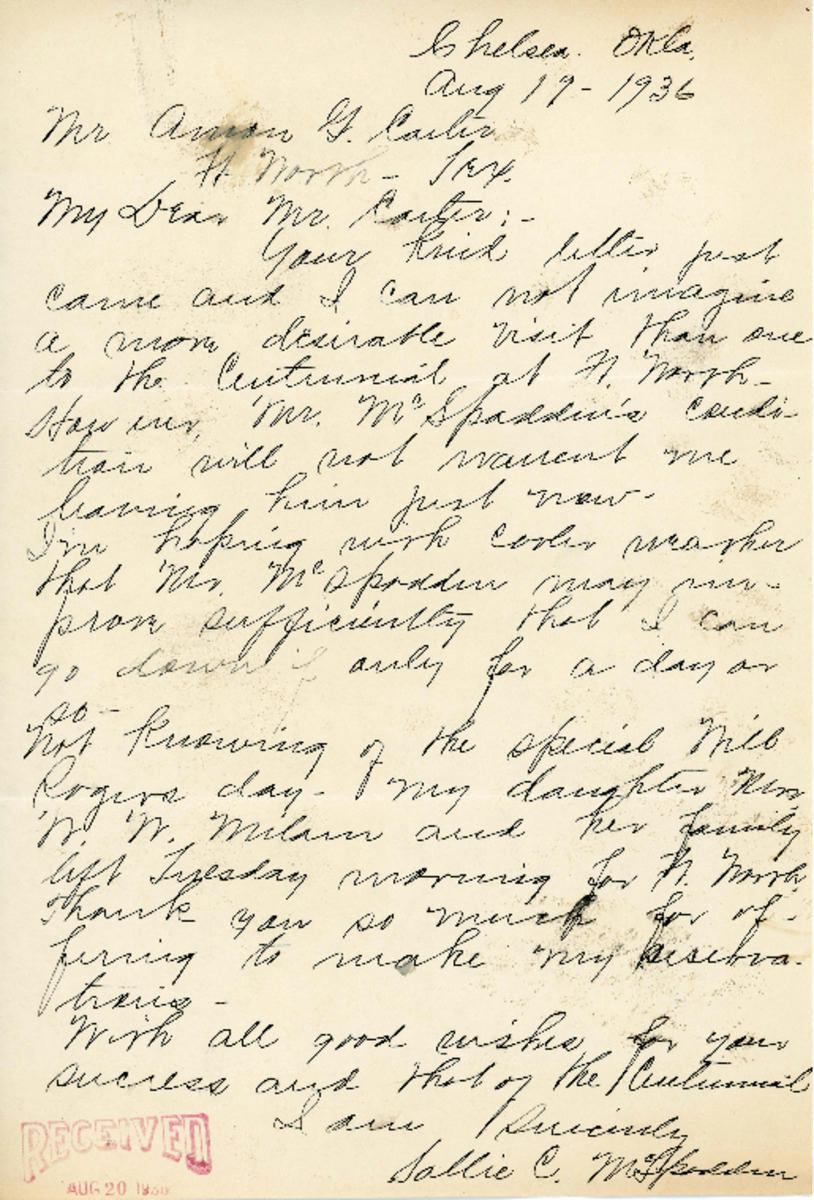 Chelsea. Okla.
Aug 19-1936
Mr Amon G. Carter
Ft Worth - Tex.
My Dear Mr. Carter:-
Your kind letter just
came and I can not imagine
a more desirable visit than one
to the Centennial at Ft. Worth-
However, Mr. McSpadden's condi-
tion will not warrent me
leaving him just now-
I'm hoping with cooler weather
that Mr. McSpadden may im-
prove sufficiently that I can
go down if only for a day or
so-
Not knowing of the special Will
Rogers day- my daughter Mrs
W. W. Milam and her family
left Tuesday morning for Ft. Worth.
Thank you so much for of-
fering to make my reserva-
tions-
With all good wishes for your
success and that of the Centennial
I am Sincerely
Sallie C. McSpadden
RECEIVED
AUG 20 1936